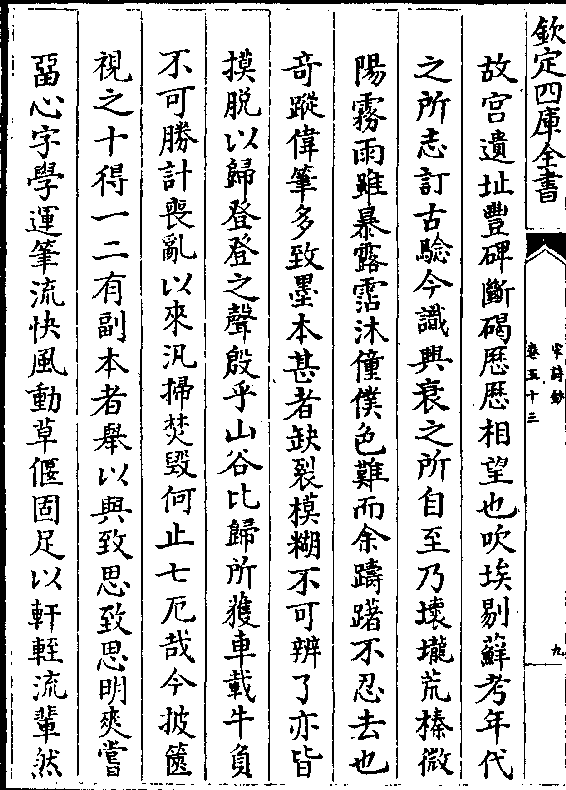 欽定四庫全書
宋詩鈔
卷五十三
九
故宫遺址豐碑斷碣厯厯相望也吹埃剔蘚考年代
之所志訂古驗今識興衰之所自至乃壊壠荒榛微
陽霧雨雖暴露霑沐僮僕色難而余躊躇不忍去也
竒蹤偉筆多致墨本甚者缺裂模糊不可辨了亦皆
摸脱以歸登登之聲殷乎山谷比歸所獲車載牛負
不可勝計喪亂以來汎掃焚毁何止七厄哉今披篋
視之十得一二有副本者舉以與致思致思明爽嘗
畱心字學運筆流快風動草偃固足以軒輊流輩然